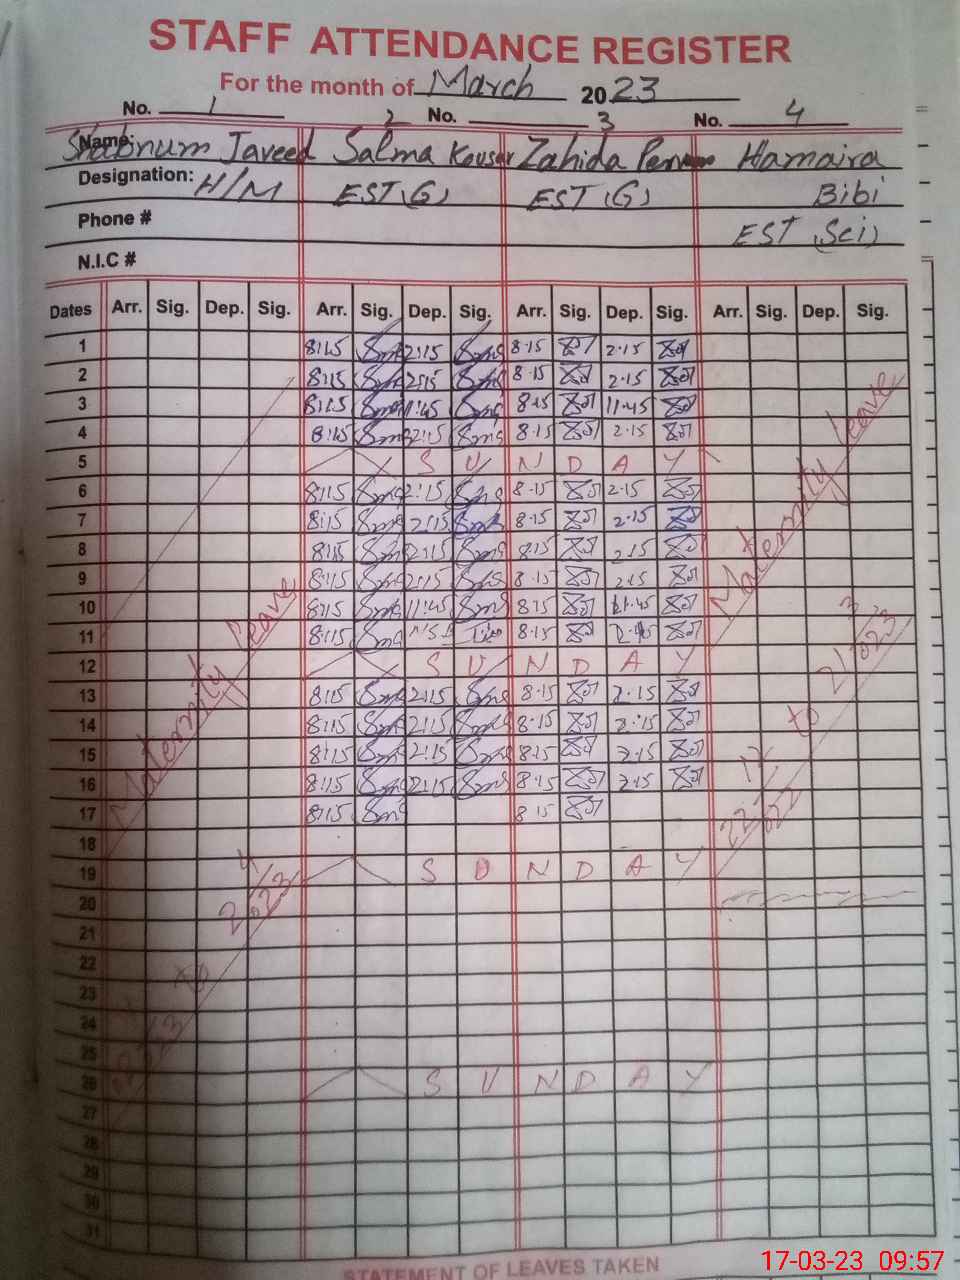 STAFF ATTENDANCE REGISTER
For the month of March 2023
No. 1 2 No. 3 No. 4
Name: Shabnum Javeed Salma Kousar Zahida Hamaira
Designation: H/M EST (G) EST (G) Bibi
Phone # EST (Sci)
N.I.C #
Dates Arr. Sig. Dep. Sig. Arr. Sig. Dep. Sig. Arr. Sig. Dep. Sig. Arr. Sig. Dep. Sig.
1 8:15 2:15 8.15 2.15
2 8:15 2:15 8.15 2.15
3 8:15 11:45 8.15 11.45
4 8:15 2:15 8.15 2.15
5 S U N D A Y
6 8:15 2:15 8.15 2.15
7 8:15 2:15 8.15 2.15
8 8:15 2:15 8.15 2.15
9 8:15 2:15 8.15 2.15
10 8:15 11:45 8.15 11.45
11 8:15 8.15
12 S U N D A Y
13 8:15 2:15 8.15 2.15
14 8:15 2:15 8.15 2.15
15 8:15 2:15 8.15 2.15
16 8:15 2:15 8.15 2.15
17 8:15 8.15
18
19 S U N D A Y
20
21
22
23
24
25
26 S U N D A Y
27
28
29
30
31
Maternity leave
to
Maternity leave
22/12/022 to 21/3/023
STATEMENT OF LEAVES TAKEN
17-03-23 09:57